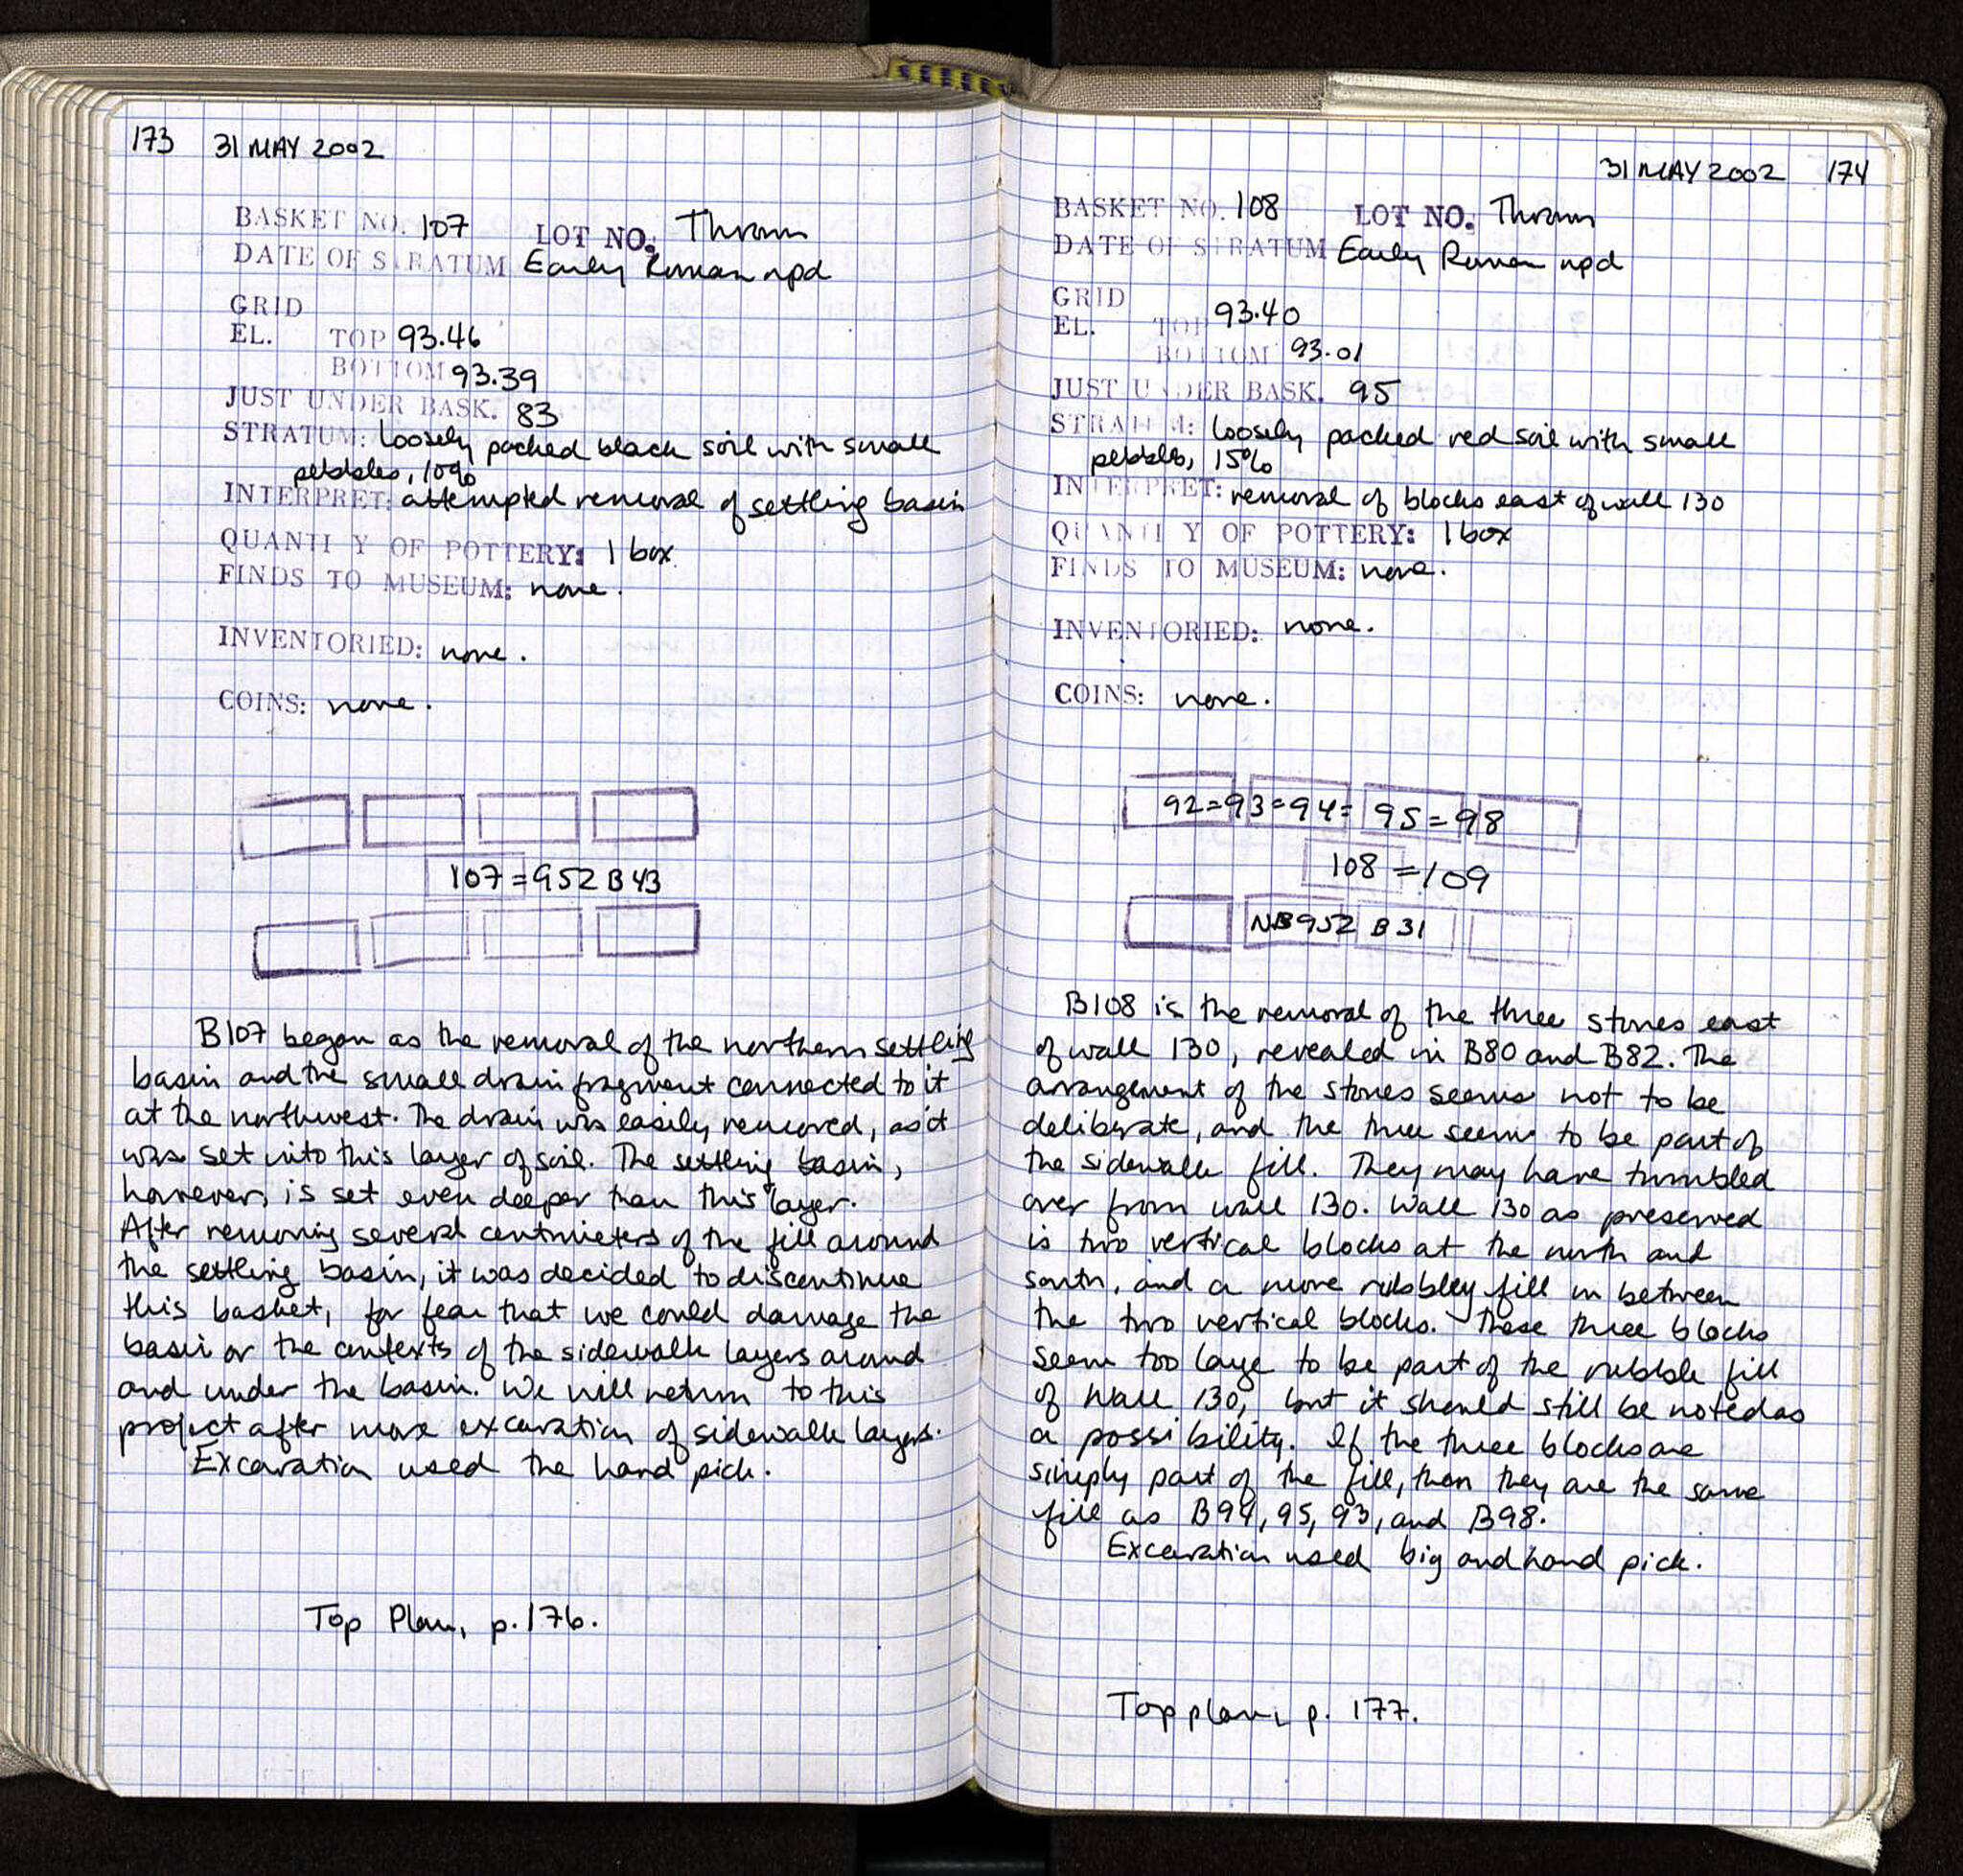 173 31 MAY 2002
BASKET NO. 107 LOT NO. Thrown
DATE OF STRATUM Early Roman npd
GRID
EL. TOP 93.46
BOTTOM 93.39
JUST UNDER BASK. 83
STRATUM: loosely packed black soil with small
pebbles, 10%
INTERPRET: attempted removal of settling basin
QUANTI Y OF POTTERY: 1 box
FINDS TO MUSEUM: none.
INVENTORIED: none.
COINS: none.
107 = 952 B 43
B107 began as the removal of the northern settling
basin and the small drain fragment connected to it
at the northwest. The drain was easily removed, as it
was set into this layer of soil. The settling basin,
however, is set even deeper than this layer.
After removing several centimeters of the fill around
the settling basin, it was decided to discontinue
this basket, for fear that we could damage the
basin or the contexts of the sidewalk layers around
and under the basin. We will return to this
project after more excavation of sidewalk layers.
Excavation used the hand pick.
Top Plan, p. 176.
31 MAY 2002 174
BASKET NO. 108 LOT NO. Thrown
DATE OF STRATUM Early Roman npd
GRID
EL. TOP 93.40
BOTTOM 93.01
JUST UNDER BASK. 95
STRATUM: loosely packed red soil with small
pebbles, 15%
INTERPRET: removal of blocks east of wall 130
QUANTI Y OF POTTERY: 1 box
FINDS TO MUSEUM: none.
INVENTORIED: none.
COINS: none.
92=93=94= 95=98
108 = 109
NB952 B31
B108 is the removal of the three stones east
of wall 130, revealed in B80 and B82. The
arrangement of the stones seems not to be
deliberate, and the three seem to be part of
the sidewalk fill. They may have tumbled
over from wall 130. Wall 130 as preserved
is two vertical blocks at the north and
south, and a more rubbley fill in between
the two vertical blocks. These three blocks
seem too large to be part of the rubble fill
of Wall 130, but it should still be noted as
a possibility. If the three blocks are
simply part of the fill, then they are the same
fill as B94, 95, 93, and B98.
Excavation used big and hand pick.
Top plan, p. 177.